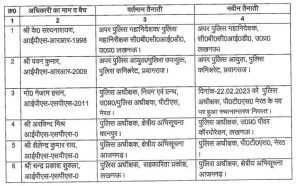 क0 अधिकारी का नाम व बैच वर्तमान तैनाती नवीन तैनाती
1 2 3 4
1 श्री के0 सत्यनारायण,
आईपीएस-आरआर-1998
अपर पुलिस महानिदेशक/पुलिस
महानिरीक्षक सी0बी0सी0आई0डी0,
लखनऊ।
अपर पुलिस महानिदेशक,
सी0बी0सी0आई0डी0, उ0प्र0
लखनऊ।
2 श्री पवन कुमार,
आईपीएस-आरआर-2009
अपर पुलिस आयुक्त/पुलिस उपायुक्त,
पुलिस कमिश्नरेट, प्रयागराज।
अपर पुलिस आयुक्त, पुलिस
कमिश्नरेट, प्रयागराज।
3 मो0 नेजाम हसन,
आईपीएस-एसपीएस-2011
पुलिस अधीक्षक, नियम एवं ग्रन्थ,
उ0प्र0/पुलिस अधीक्षक, पीटीएस,
मेरठ।
दिनांक-22.02.2023 को पुलिस
अधीक्षक, पी0टी0एस0 मेरठ के पद
पर हुआ स्थानान्तरण निरस्त।
4 श्री अरविन्द मिश्र
आईपीएस-एसपीएस-0
पुलिस अधीक्षक, क्षेत्रीय अभिसूचना
कानपुर।
पुलिस अधीक्षक, उ0प्र0 पॉवर
कॉरपोरेशन, लखनऊ।
5 श्री शैलेन्द्र कुमार राय,
आईपीएस-एसपीएस-0
पुलिस अधीक्षक, क्षेत्रीय अभिसूचना
आजमगढ़।
पुलिस अधीक्षक, पी0टी0एस0, मेरठ।
6 श्री चन्द्र प्रकाश शुक्ला,
आईपीएस-एसपीएस-0
पुलिस अधीक्षक, सहकारिता प्रकोष्ठ,
लखनऊ।
पुलिस अधीक्षक, क्षेत्रीय अभिसूचना
आजमगढ़।